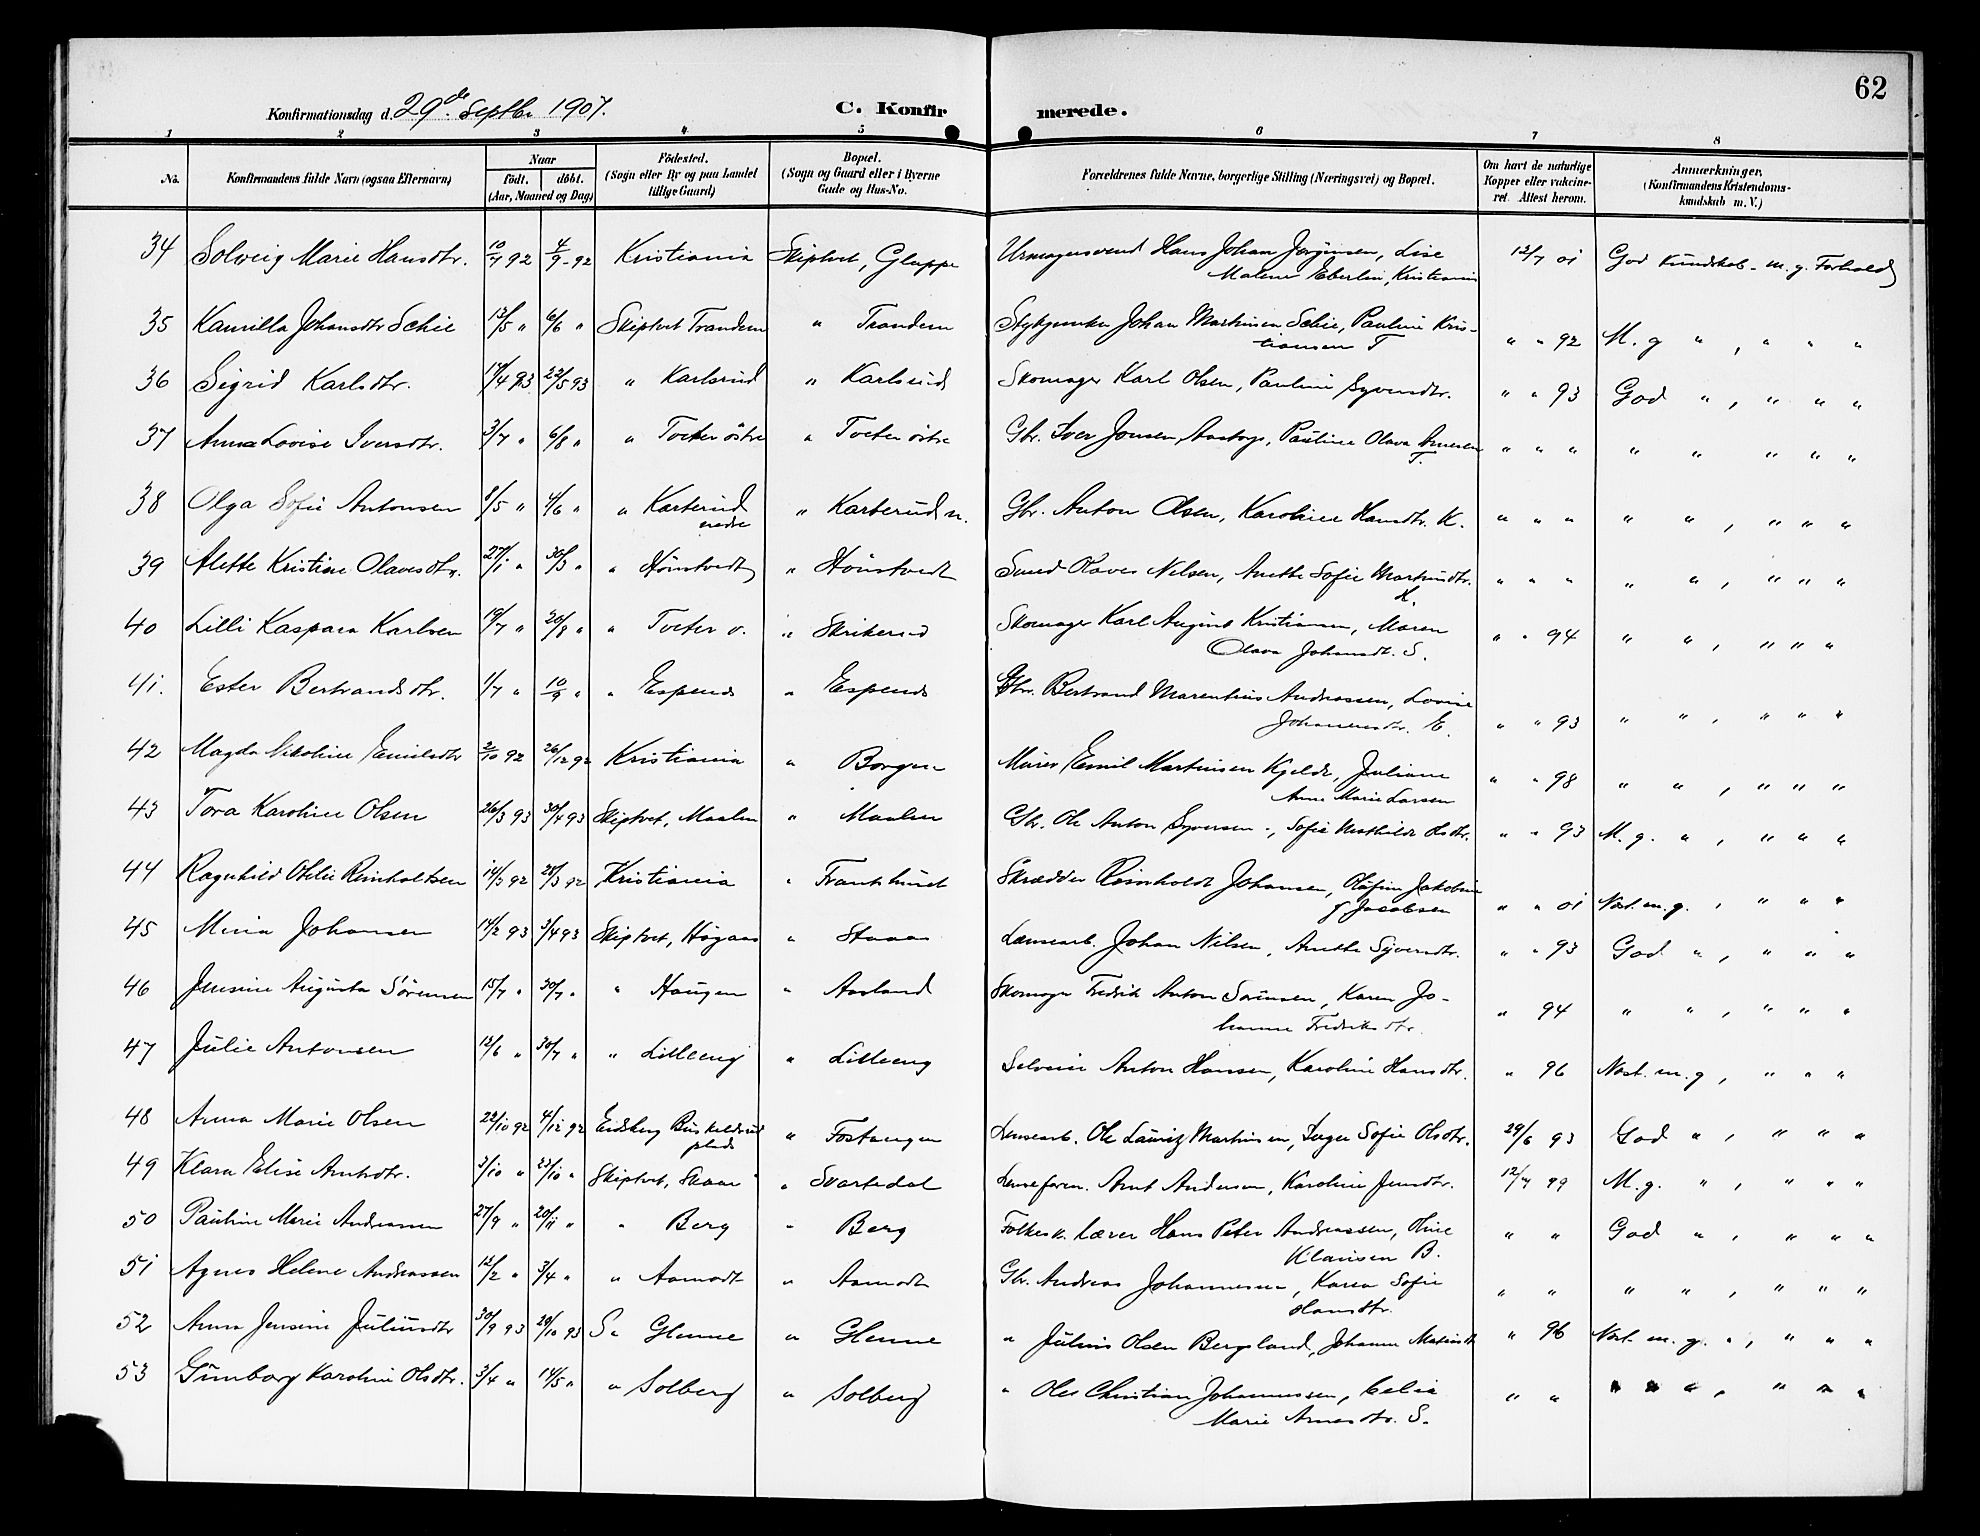 62
Konfirmationsdag d. 29de Septbr 1907.
C. Konfirmerede.
1 2 3 4 5 6 7 8
No.
Konfirmandens fulde Navn (ogsaa Efternavn)
Naar
født. døbt.
(Aar, Maaned og Dag)
Födested.
(Sogn eller By og paa Landet
tillige Gaard)
Bopæl.
(Sogn og Gaard eller i Byerne
Gade og Hus-No.
Forældrenes fulde Navne, borgerlige Stilling (Næringsvei) og Bopæl.
Om havt de naturlige
Kopper eller vakcine-
ret. Attest herom.
Anmærkninger,
(Konfirmandens Kristendoms-
kundskab m. V.)
34 Solveig Marie Hansdtr. 10/4 92 4/9-92 Kristiania Skiptvet, Gluppe Urmagersvend Hans Johan Jørginsen, Lise 12/7 01 God Kundskab - m. g. Forhold
Malene Eberlin, Kristiania
35 Kamilla Johansdtr Schie 13/5 " 6/6 " Skiptvet Trandem " Trandem Johan Martinsen Schie, Pauline Kris-
tiansen T " " 92 M. g " , " " "
36 Sigrid Karlsdtr. 17/4 93 22/5 93 " Karlsrud " Karlsrud Skomager Karl Olsen, Pauline Syversdtr. " " 93 God " , " " "
37 Anna Lovise Iversdtr. 3/7 " 6/8 " " Tveter östre " Tveter östre Gbr. Iver Jensen, Pauline Olava Arnesen " " " " " " " "
T.
38 Olga Sofie Antonsen 8/5 " 4/6 " " Karterud " Karterud n. Gbr. Anton Olsen, Karoline Hansdtr. K. " " " " " , " " "
nedre
39 Alette Kristine Olavesdtr. 27/1 " 30/3 " " Hönstvedt " Hönstvedt Smed Olaves Nilsen, Anette Sofie Martinsdtr. " " " " " , " " "
H.
40 Lilli Kaspara Karlsen 19/7 " 20/8 " " Tveter v. " Skrikerud Skomager Karl August Kristiansen, Maren " " 94 " " , " " "
Olava Johansdt. S.
41. Ester Bertrandsdtr. 1/7 " 10/9 " " Espends " Espends Gbr. Bertrand Marentius Andreassen, Lovise
Johannesdtr. E. " " 93 " " , " " "
42 Magda Nikoline Emilsdtr 2/10 92 26/12 92 Kristiania " Borgen Murer Emil Martinsen Kjelds, Juliane
Anne Marie Larsen " " 98 " " , " " "
43 Tora Karoline Olsen 26/3 93 30/4 93 Skiptvet, Maalen " Maalen Gbr. Ole Anton Syversen ", Sofie Mathilde Olsdtr. " " 93 M. g. " , " " "
44 Ragnhild Otelie Reinholtsen 14/3 92 28/3 92 Kristiania " Skrædder Reinholdt Johansen, Jakobine
f Jacobsen " " 01 Næst. m. g. , " " "
45 Mina Johansen 14/2 93 3/4 93 Skiptvet, Høgaas " Johan Nilsen, Anette Syversdtr. " " 93 God " , " " "
46 Jensine Augusta Sörensen 15/7 " 30/7 " " Haugen " Aasland Skomager Fredrik Anton Sörensen, Karen Jo-
hanne Fredriksdtr. " 94 " " , " " "
47 Julie Antonsen 12/6 " 30/7 " " Lilleeng " Lilleeng Selveier Anton Hansen, Karoline Hansdtr. " 96 Næst. m. g , " " "
48 Anna Marie Olsen 22/10 92 4/12 92 Eidsberg Buskeldsrud " Ole Lauritz Martinsen, Inger Sofie Olsdtr. 29/6 93 God " , " " "
plads
49 Klara Elise Arntsdtr. 3/10 " 23/10 " Skiptvet, Skaar " Svartedal Arnt Andersen, Karoline Jensdtr. 12/7 99 M. g. " , " " "
50 Pauline Marie Andreassen 27/9 " 20/11 " " Berg " Berg Folkesk. Lærer Hans Peter Andreassen, Oline " " God " , " " "
Klausen B.
51 Agnes Helene Andreassen 12/2 " 3/4 " " Aamodt " Aamodt Gbr. Andreas Johannessen, Karen Sofie " " " " , " " "
Hansdtr.
52 Anna Jensine Juliusdtr 30/9 93 29/10 93 S " Glenne " Glenne " Julius Olsen Bergsland, Johanne " 96 Næst. m. g. " , " " "
53 Gunborg Karoline Olsdtr. 3/4 " 14/5 " " Solberg " Solberg " Oles Christian Johannessen, Celia " " " " " , " " "
Marie Arnesdtr. S.